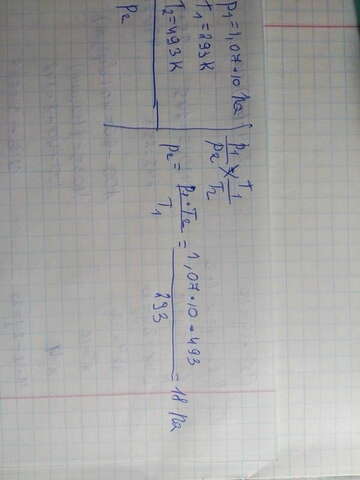 p₁=1,07·10 Pa
T₁=293K
T₂=493K
p₂
p₁/p₂ = T₁/T₂
p₂ = p₁·T₂/T₁ = 1,07·10·493/293 = 18 Pa